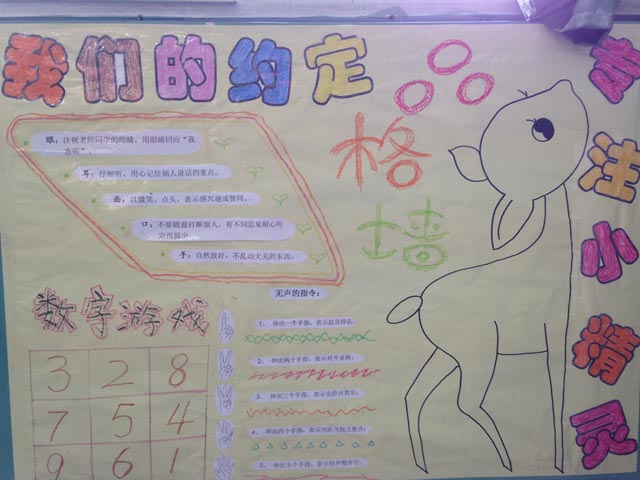 我们的约定
专注小精灵
格
墙
眼：注视老师同学的眼睛，用眼睛回应“我
在听”。
耳：仔细听，用心记住别人说话的重点。
面：以微笑、点头，表示感兴趣或赞同。
口：不要随意打断别人，有不同意见耐心听
完再提出。
手：自然放好，不乱动无关的东西。
数字游戏
3 2 8
7 5 4
9 6 1
无声的指令：
1、伸出一个手指，表示起身排队；
2、伸出两个手指，表示对齐桌椅；
3、伸出三个手指，表示安静出教室；
4、伸出四个手指，表示列队又快又整齐；
5、伸出五个手指，表示轻声慢步行。